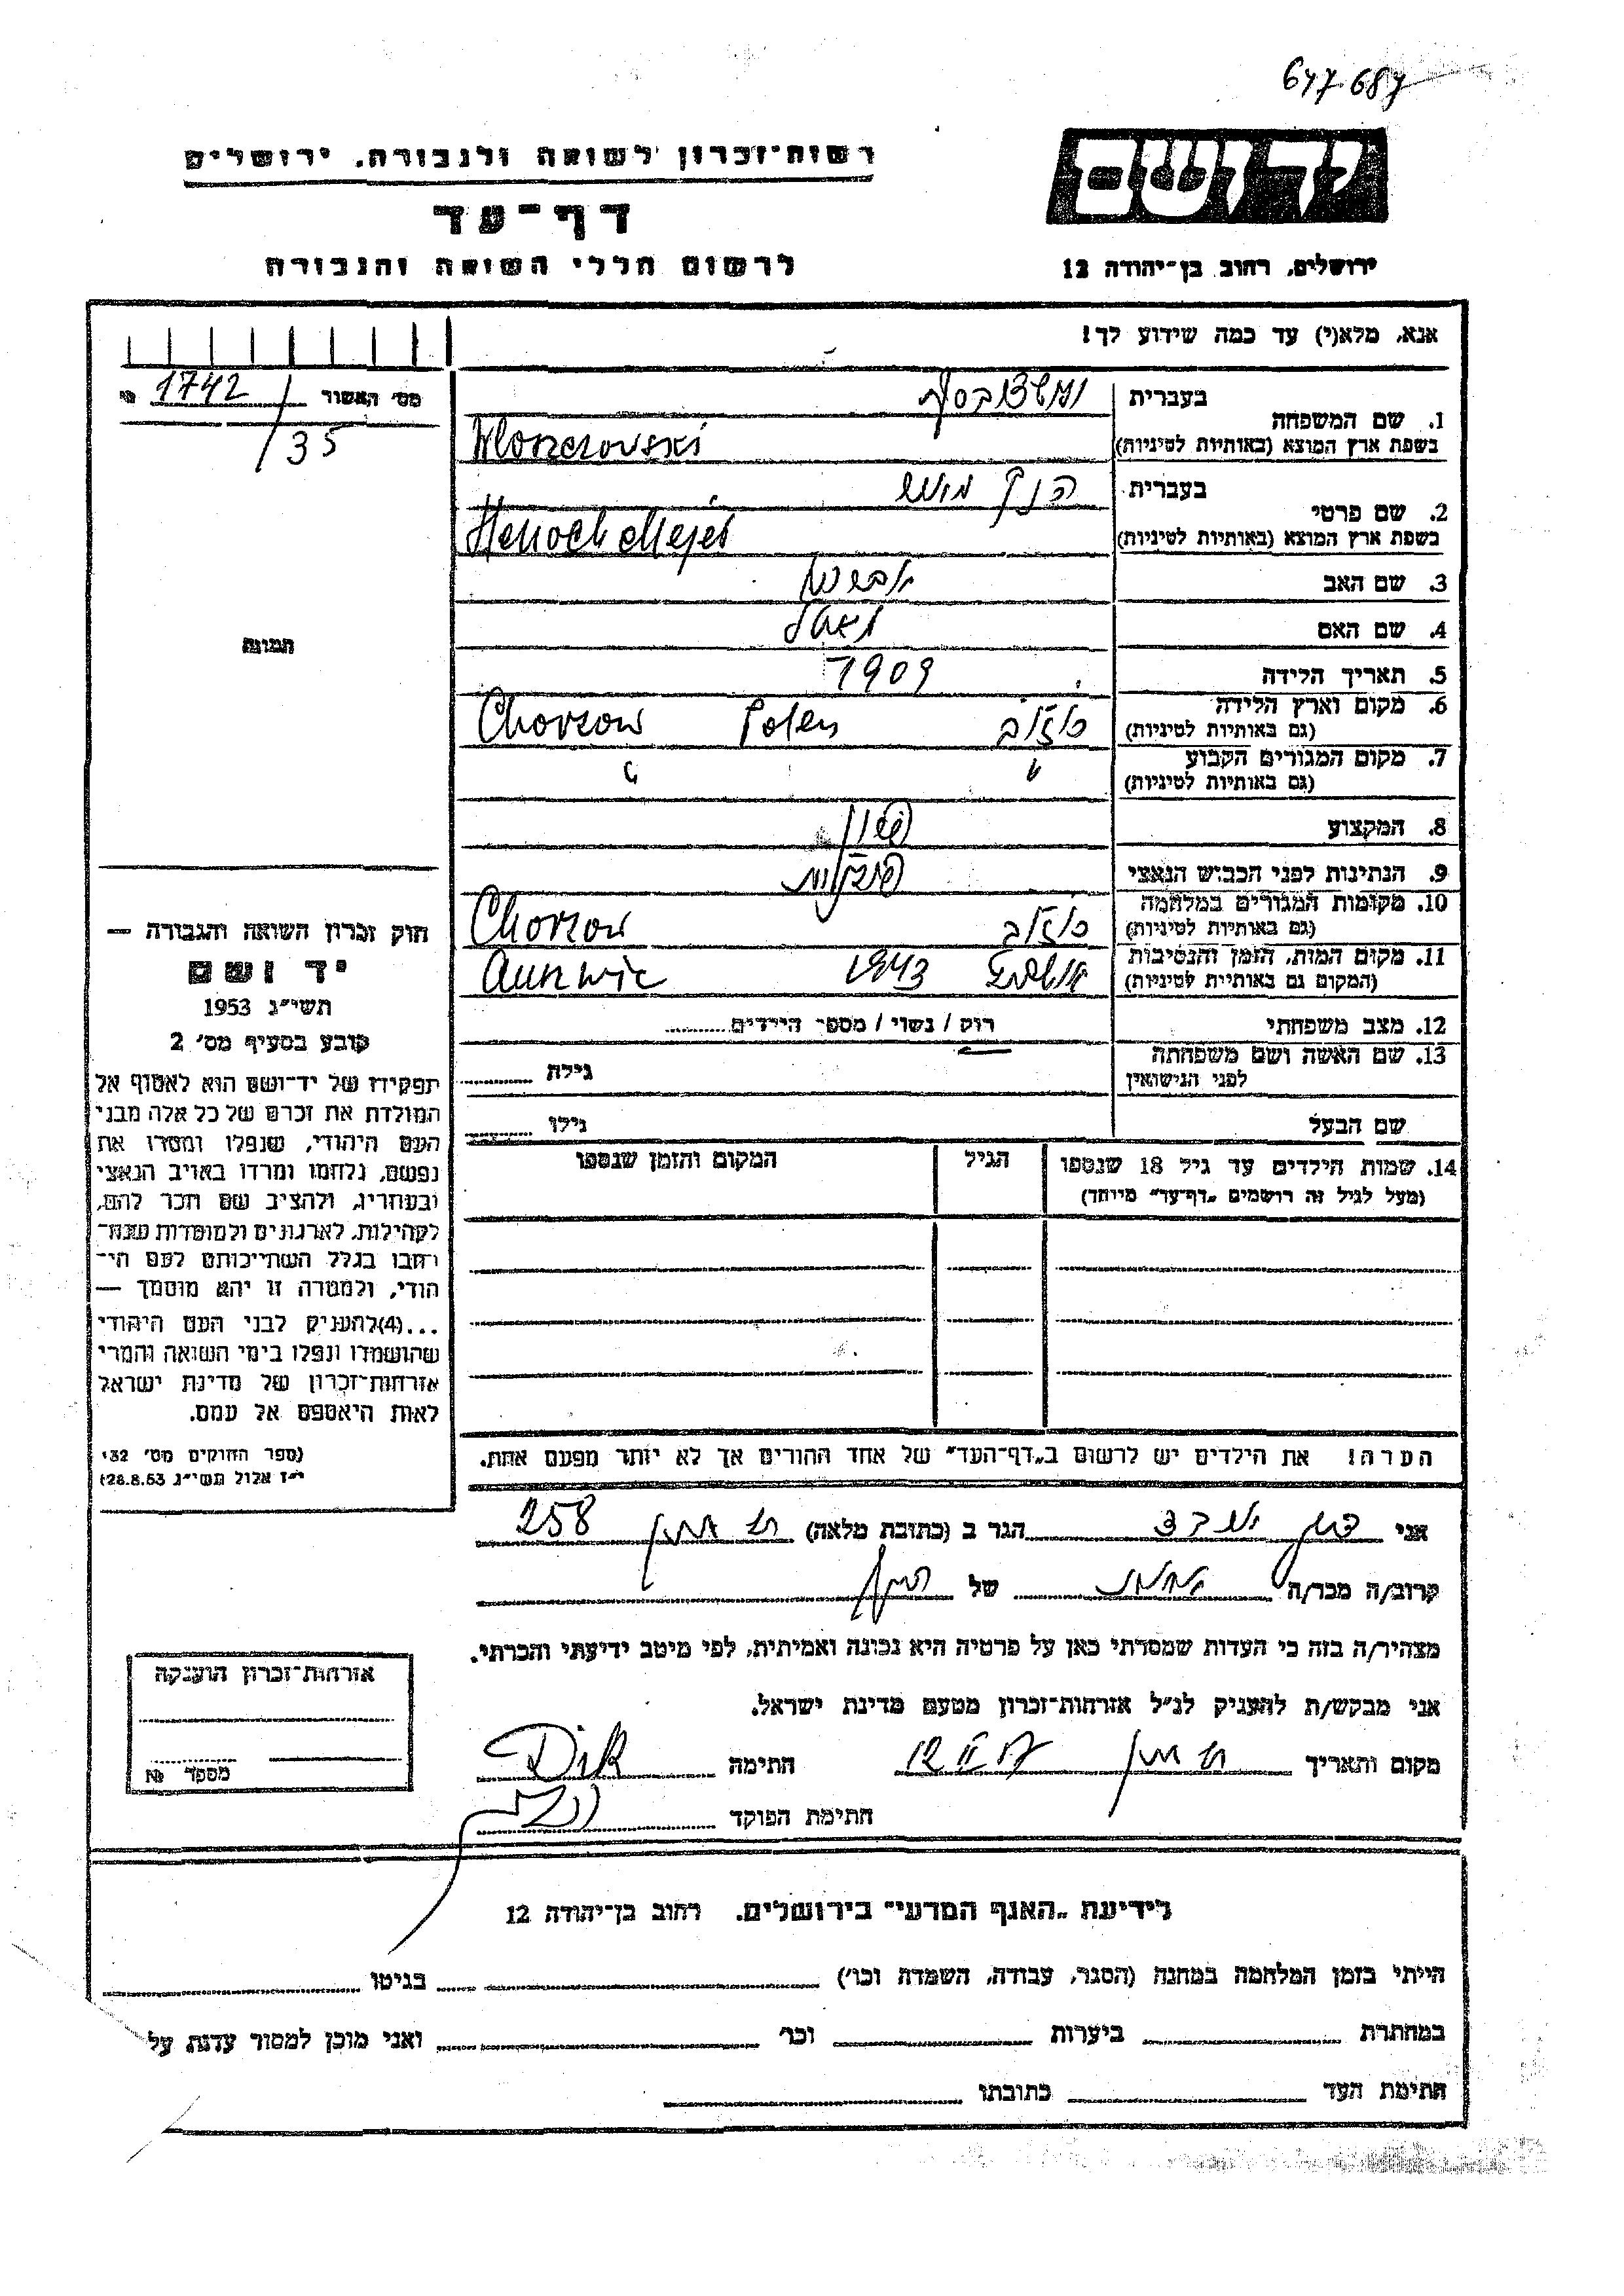 677.687
ידושם
ירושלים, רחוב בן־יהודה 12
רשות־זכרון לשואה ולגבורה, ירושלים
דף־עד
לרשום חללי השואה והגבורה
אנא, מלא(י) עד כמה שידוע לך!
מס׳ האשור 1742 №
/35
1. שם המשפחה
בעברית
בשפת ארץ המוצא (באותיות לטיניות)
2. שם פרטי
בעברית הנך
בשפת ארץ המוצא (באותיות לטיניות) Henoch
3. שם האב
4. שם האם
5. תאריך הלידה 1909
6. מקום וארץ הלידה
(גם באותיות לטיניות) Chorzow Polen
7. מקום המגורים הקבוע
(גם באותיות לטיניות)
8. המקצוע
9. הנתינות לפני הכבוש הנאצי פולנית
10. מקומות המגורים במלחמה
(גם באותיות לטיניות) Chorzow
11. מקום המות, הזמן והנסיבות
(המקום גם באותיות לטיניות) 1943
12. מצב משפחתי רווק / נשוי / מספר הילדים
13. שם האשה ושם משפחתה
לפני הנישואין גילה
שם הבעל גילו
14. שמות הילדים עד גיל 18 שנספו הגיל המקום והזמן שנספו
(מעל לגיל זה רושמים „דף־עד״ מיוחד)
הערה! את הילדים יש לרשום ב„דף־העד״ של אחד ההורים אך לא יותר מפעם אחת.
תמונה
חוק זכרון השואה והגבורה —
יד ושם
תשי״ג 1953
קובע בסעיף מס׳ 2
תפקידו של יד־ושם הוא לאסוף אל
המולדת את זכרם של כל אלה מבני
העם היהודי, שנפלו ומסרו את
נפשם, נלחמו ומרדו באויב הנאצי
ובעוזריו, ולהציב שם וזכר להם,
לקהילות, לארגונים ולמוסדות שנח־
רבו בגלל השתייכותם לעם הי־
הודי, ולמטרה זו יהא מוסמך —
...(4) להעניק לבני העם היהודי
שהושמדו ונפלו בימי השואה והמרי
אזרחות־זכרון של מדינת ישראל
לאות היאספם אל עמם.
(ספר החוקים מס׳ 132
י״ז אלול תשי״ג 28.8.53)
אני הגר ב (כתובת מלאה) 258
קרוב/ה מכר/ה של
מצהיר/ה בזה כי העדות שמסרתי כאן על פרטיה היא נכונה ואמיתית, לפי מיטב ידיעתי והכרתי.
אני מבקש/ת להעניק לנ״ל אזרחות־זכרון מטעם מדינת ישראל.
מקום ותאריך חתימה
חתימת הפוקד
אזרחות־זכרון הוענקה
מספר №
לידיעת „האגף המדעי״ בירושלים, רחוב בן־יהודה 12
הייתי בזמן המלחמה במחנה (הסגר, עבודה, השמדה וכו׳) בגיטו
במחתרת ביערות וכו׳ ואני מוכן למסור עדות על
חתימת העד כתובתו